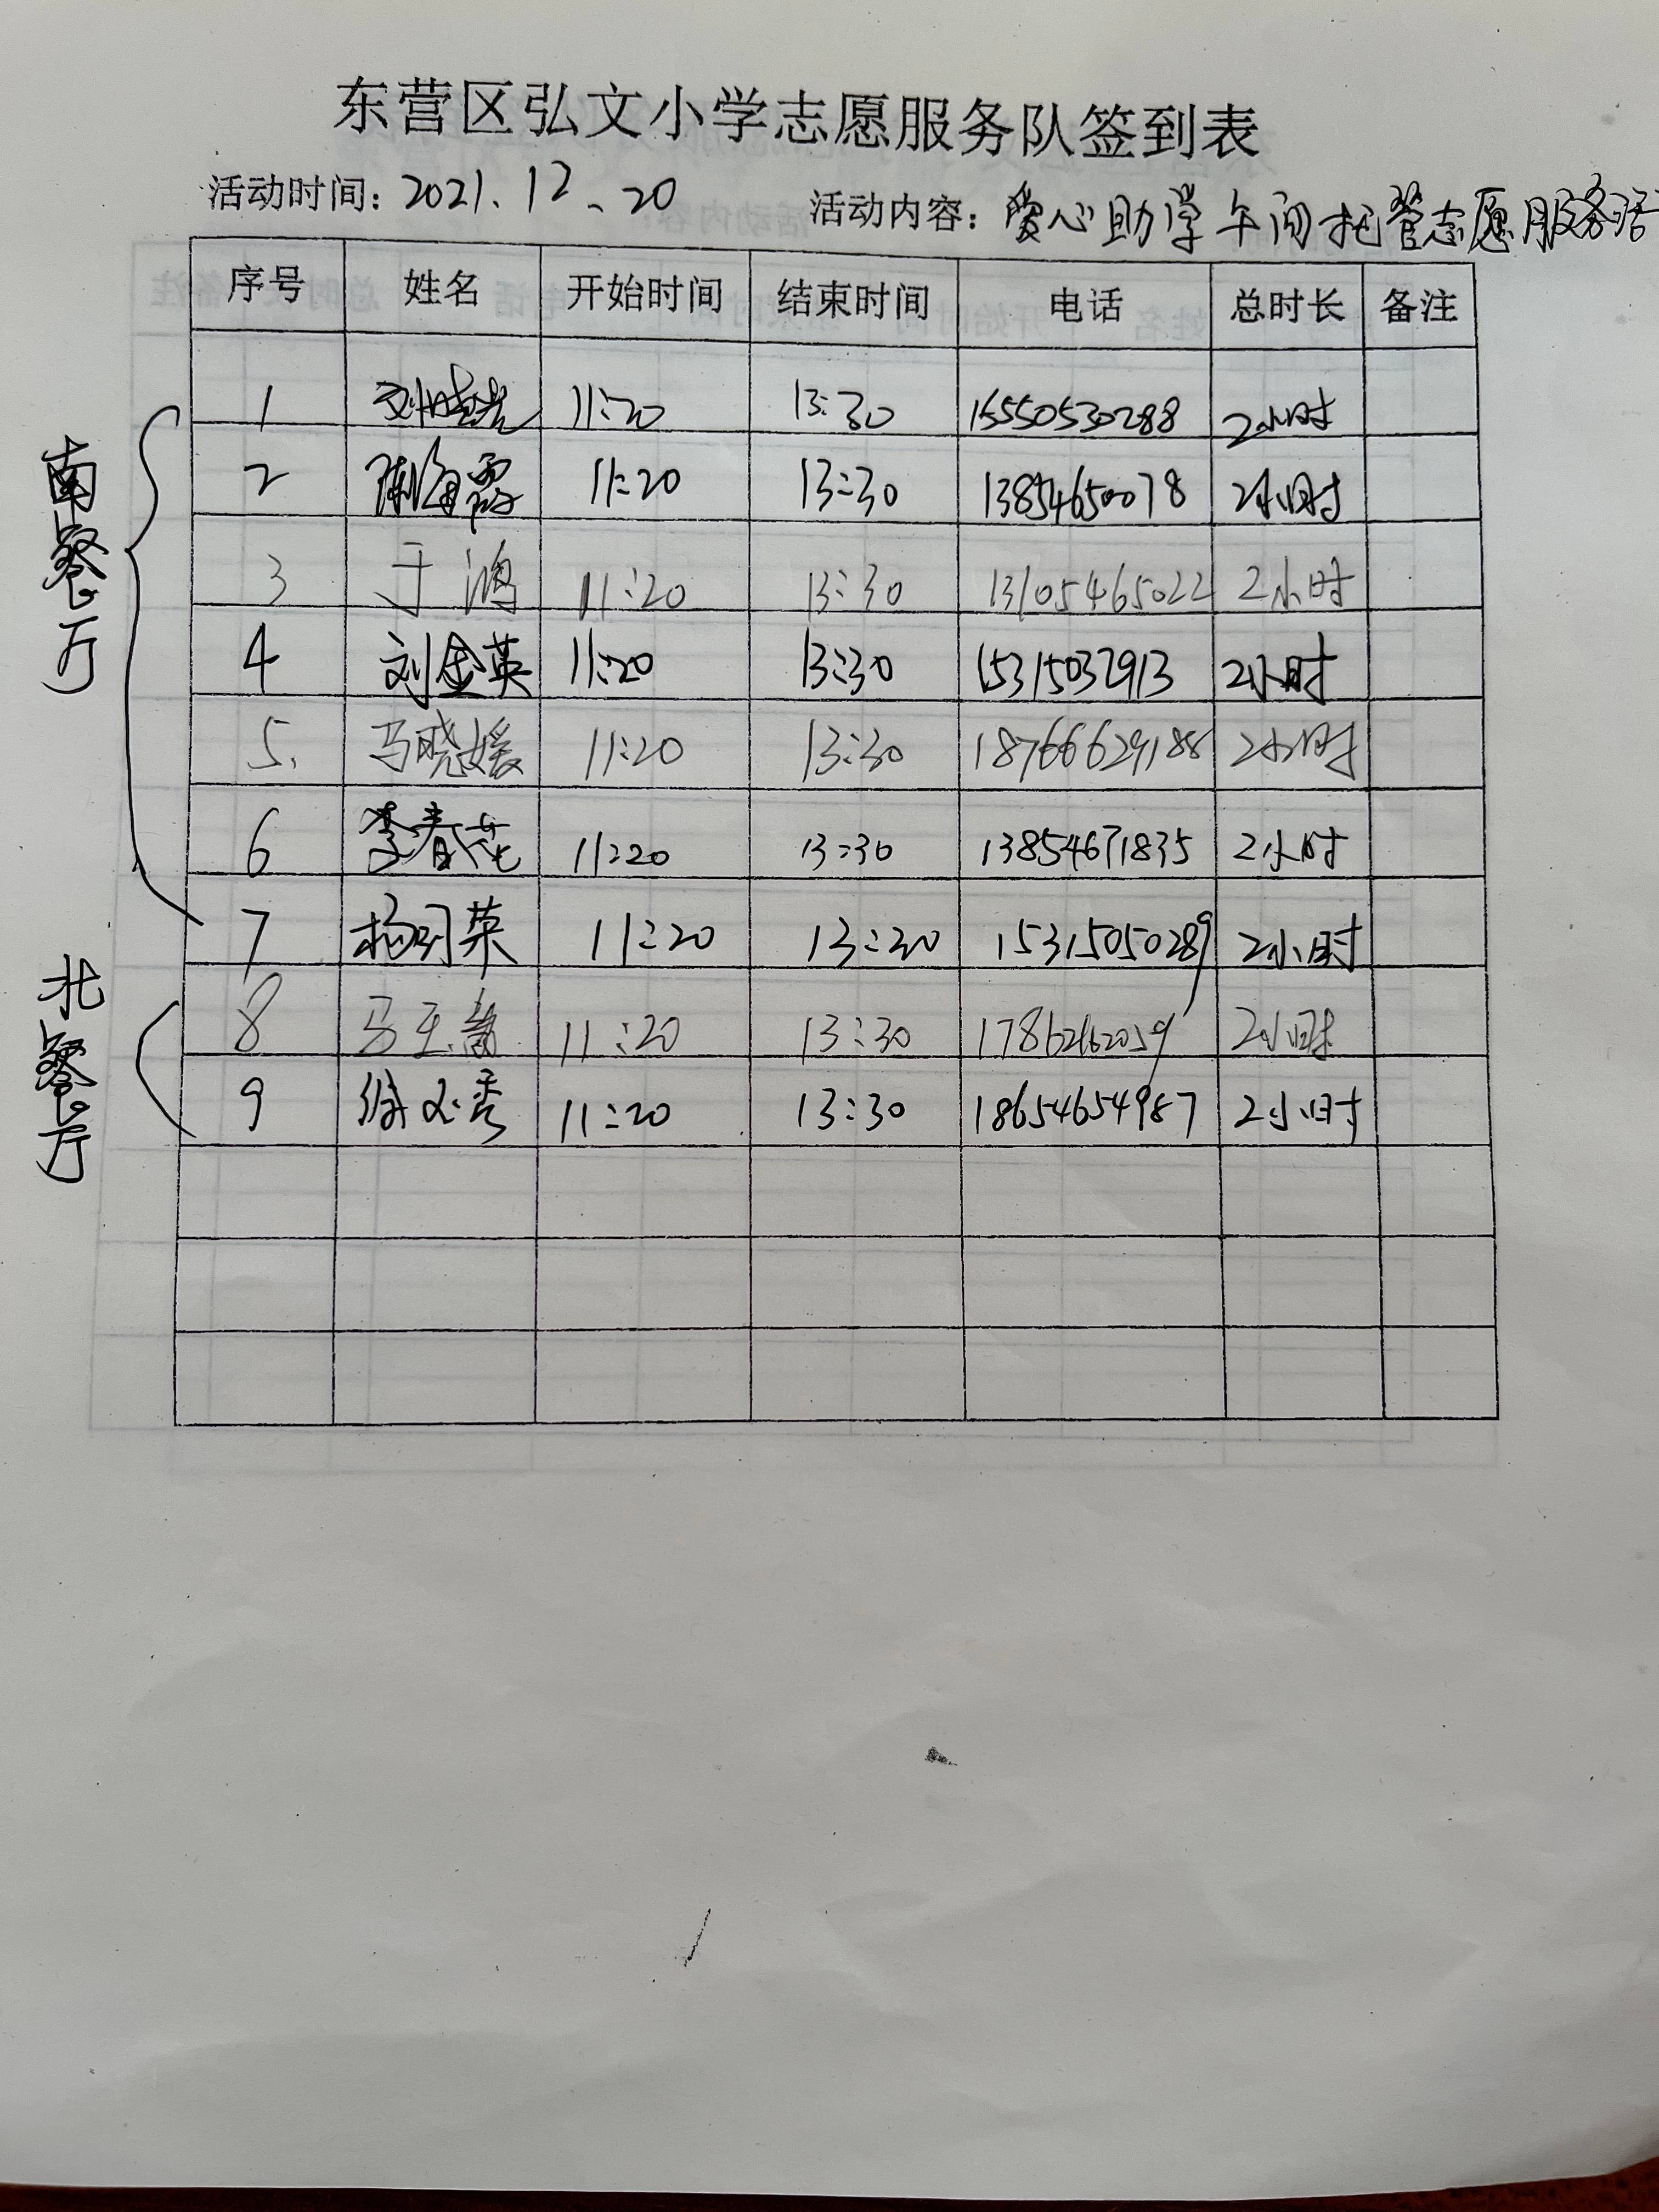 东营区弘文小学志愿服务队签到表
活动时间: 2021.12.20 活动内容: 爱心助学午间托管志愿服务活
序号 姓名 开始时间 结束时间 电话 总时长 备注
南餐厅
1 刘晓光 11:20 13:30 15550530288 2小时
2 陈海霞 11:20 13:30 13854650078 2小时
3 于鸿 11:20 13:30 13105465022 2小时
4 刘金英 11:20 13:30 15315037913 2小时
5. 马晓媛 11:20 13:30 18766629188 2小时
6 李春花 11:20 13:30 13854671835 2小时
7 杨荣 11:20 13:30 15315050289 2小时
北餐厅
8 马玉 11:20 13:30 17862162059 2小时
9 徐秀 11:20 13:30 18654654987 2小时